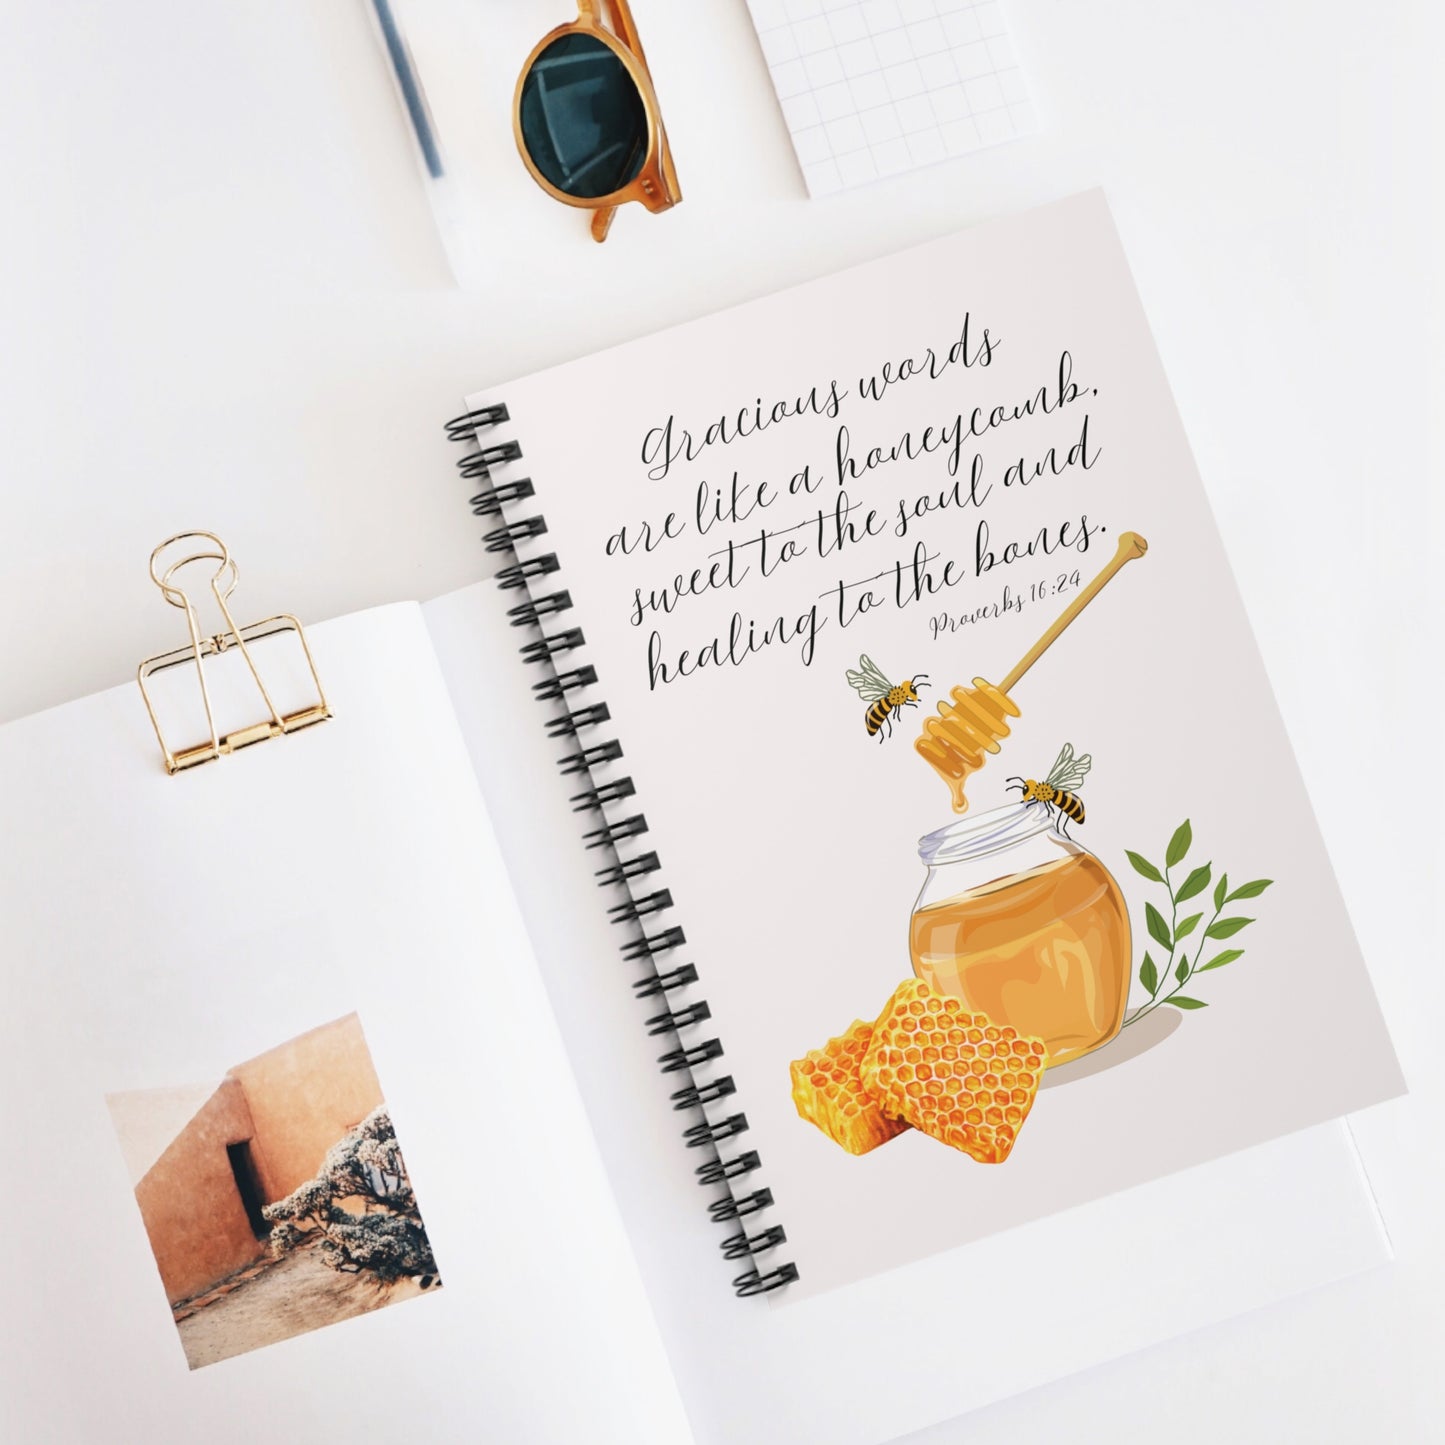 Gracious words
are like a honeycomb,
sweet to the soul and
healing to the bones.
Proverbs 16:24